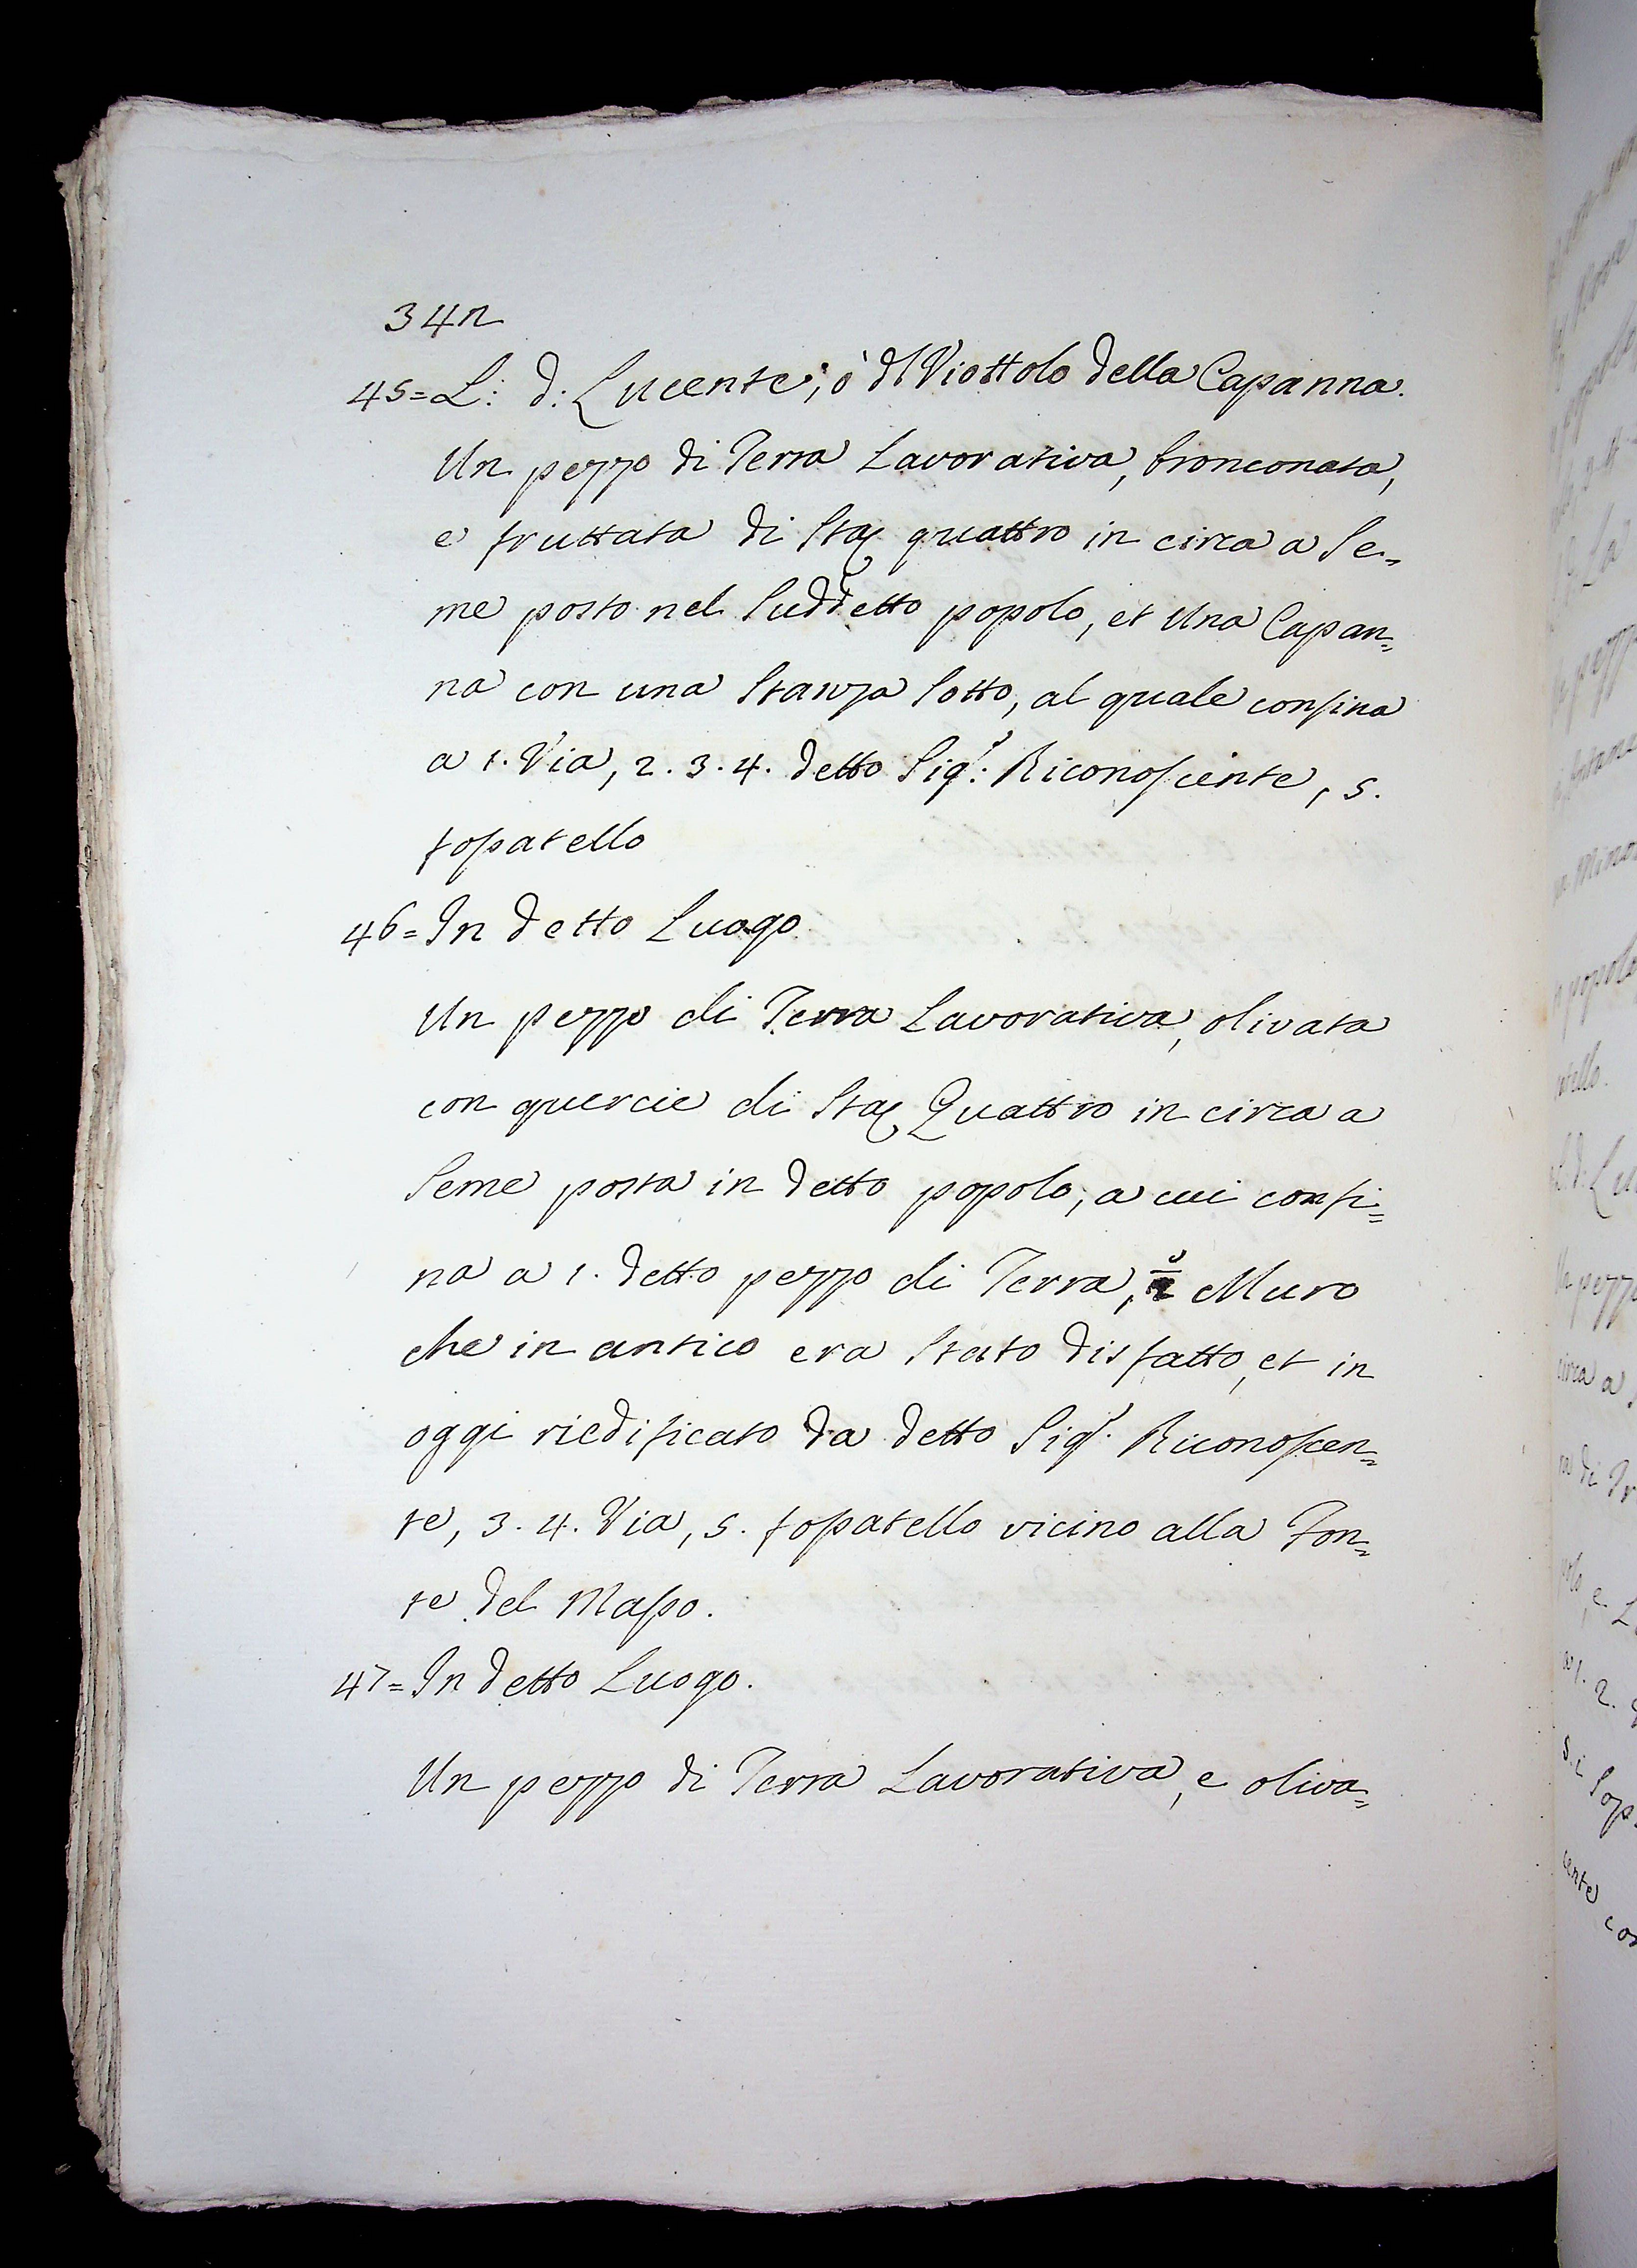 34n
45= L: d: Lucente; ò il Viottolo della Capanna.
Un pezzo di Terra Lavorativa, bronconata,
e fruttata di Sta quattro in circa a Se=
me posto nel Suddetto popolo, et Una Capan=
na con una Stanza Sotto, al quale confina
a 1. Via, 2. 3. 4. detto Sigr: Riconoscente, 5.
fossatello
46= In detto Luogo.
Un pezzo di Terra Lavorativa, olivata
con quercie di Sta Quattro in circa a
Seme posta in detto popolo, a cui confi=
na a 1. detto pezzo di Terra, 2 Muro
che in antico era Stato disfatto, et in
oggi riedificato da detto Sigr. Riconoscen=
te, 3. 4. Via, 5. fossatello vicino alla Fon=
te del Masso.
47= In detto Luogo.
Un pezzo di Terra Lavorativa, e oliva=